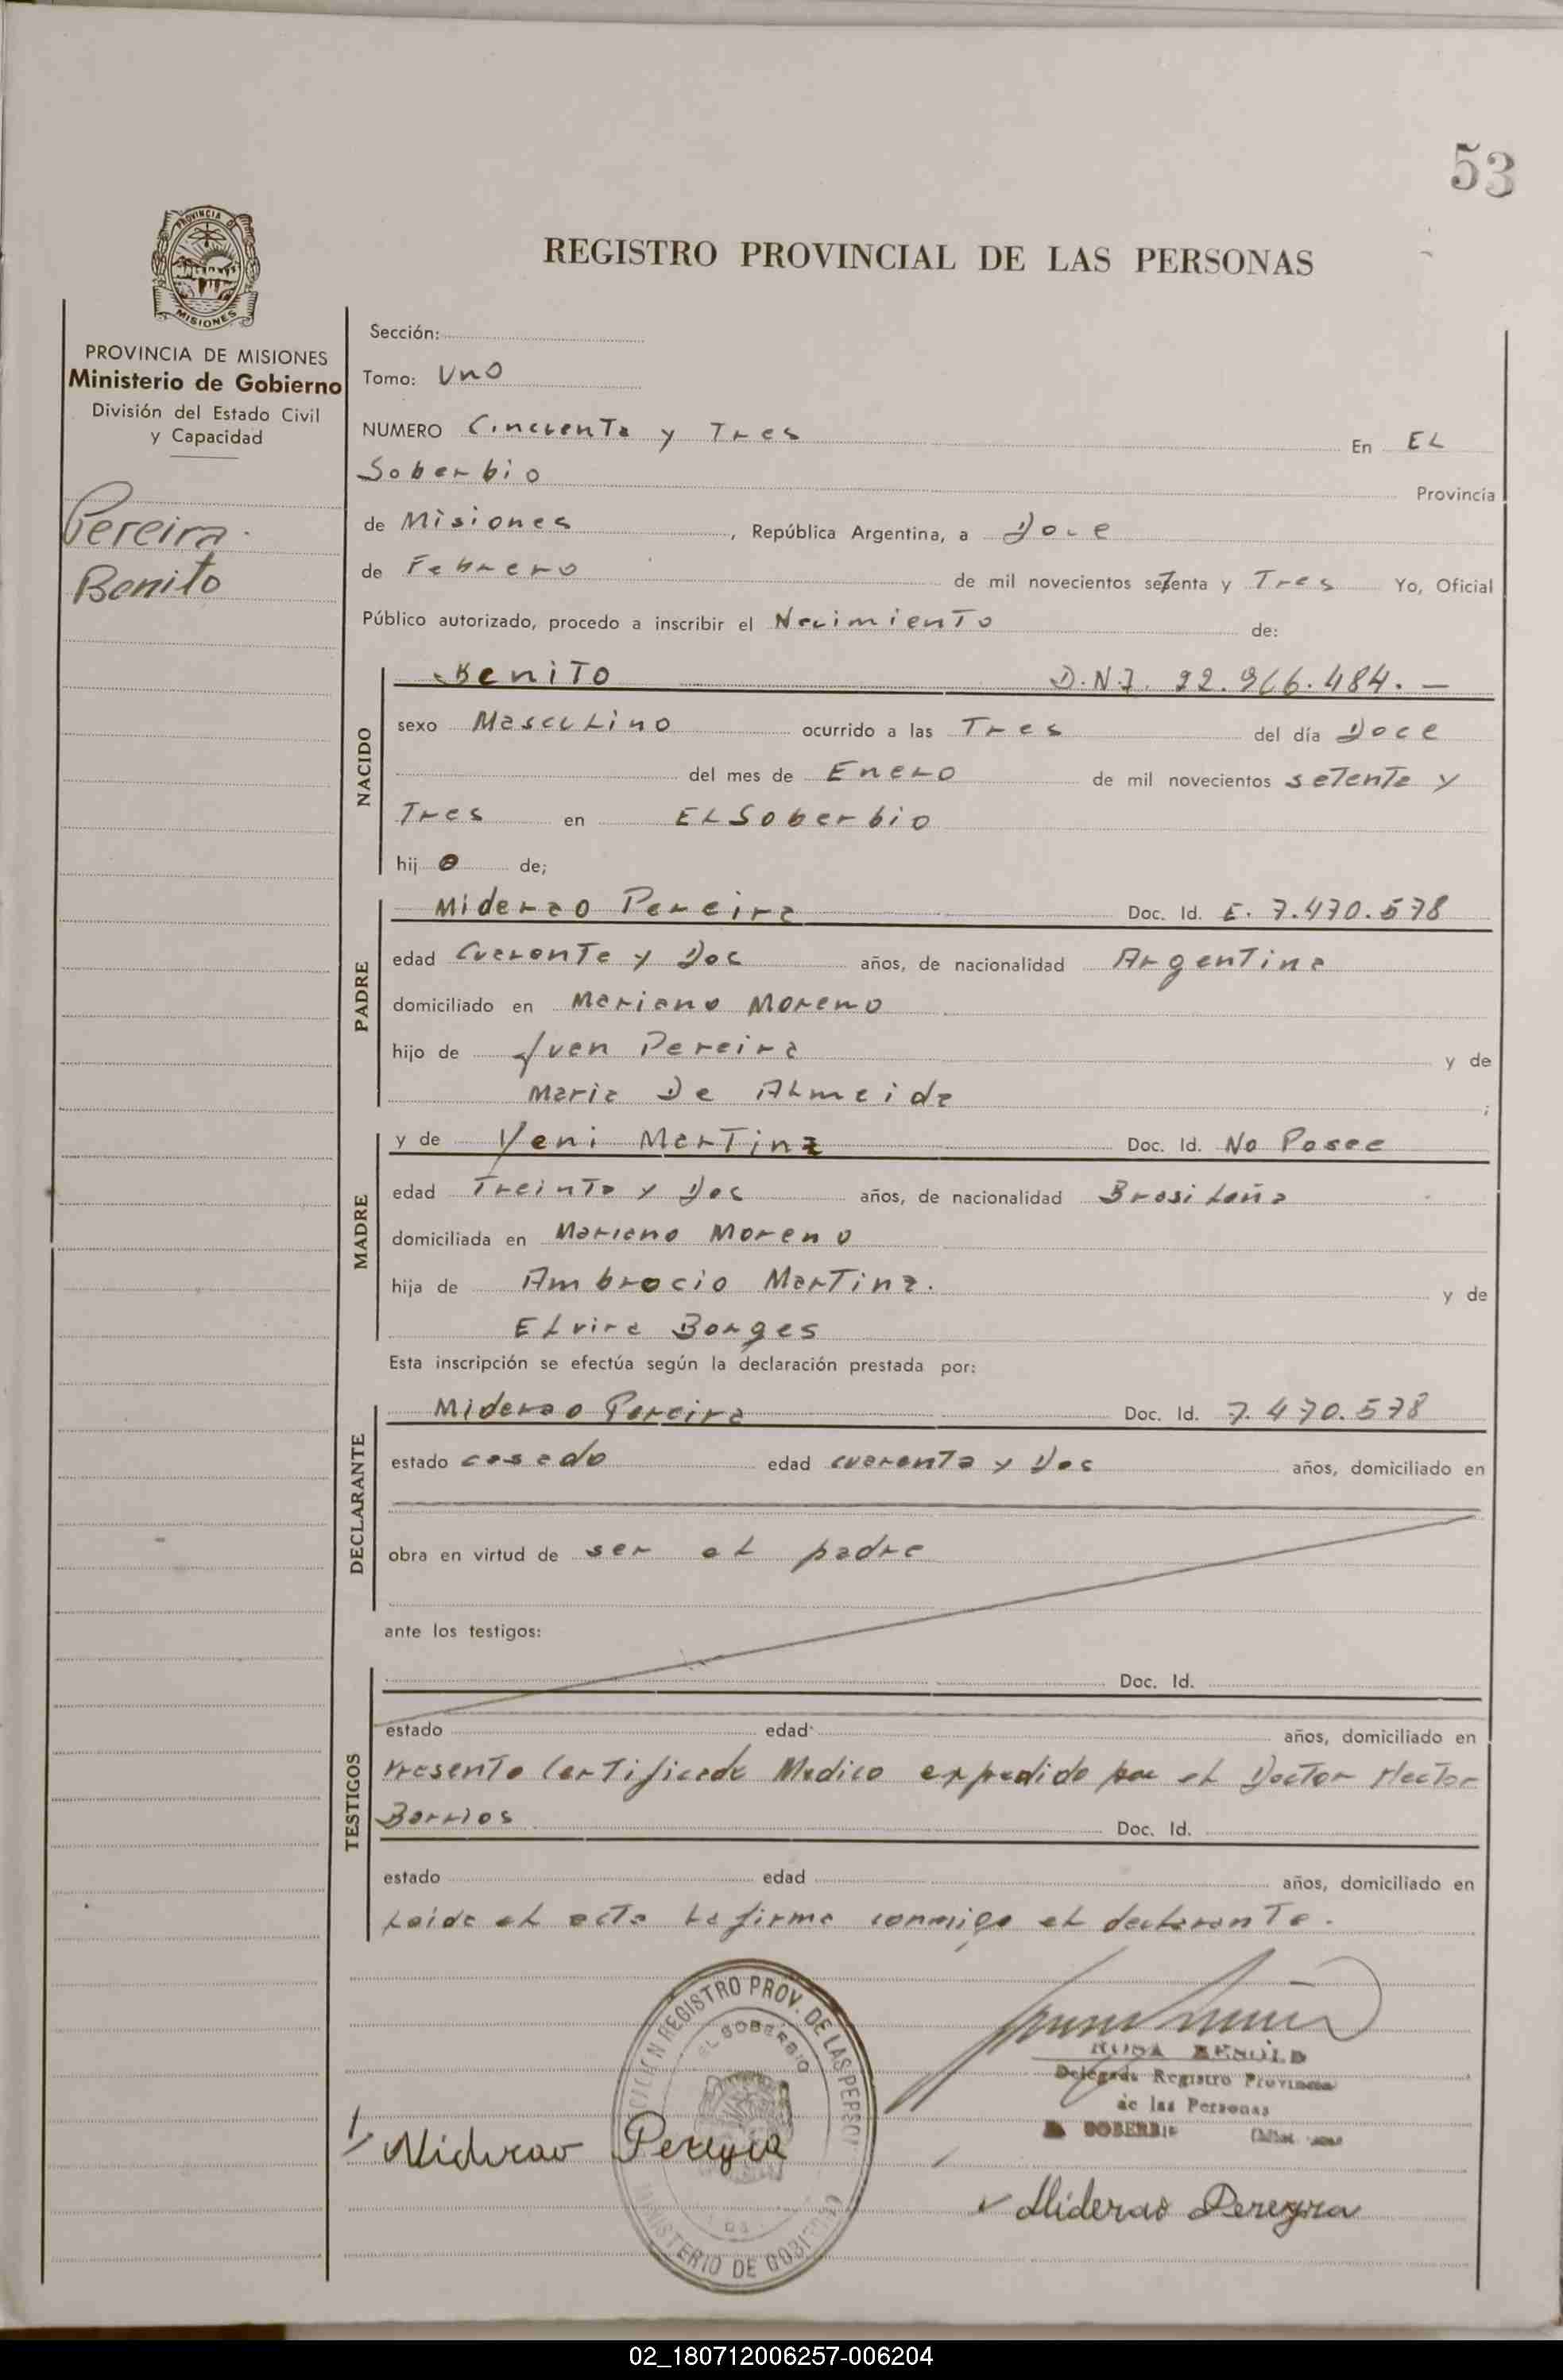 53
PROVINCIA DE
MISIONES
REGISTRO PROVINCIAL DE LAS PERSONAS
PROVINCIA DE MISIONES
Ministerio de Gobierno
División del Estado Civil
y Capacidad
Pereira
Benito
Sección:
Tomo: Uno
NUMERO Cincuenta y Tres En EL
Soberbio Provincia
de Misiones, República Argentina, a Doce
de Febrero de mil novecientos setenta y Tres Yo, Oficial
Público autorizado, procedo a inscribir el Necimiento de:
NACIDO
Benito D.N.I. 22.966.484.-
sexo Masculino ocurrido a las Tres del día Doce
del mes de Enero de mil novecientos setenta y
Tres en EL Soberbio
hijo de;
PADRE
Miderao Pereira Doc. Id. E. 7.470.578
edad Cuarenta y Dos años, de nacionalidad Argentina
domiciliado en Mariano Moreno
hijo de Juan Pereira y de
Maria De Almeida;
MADRE
y de Yeni Martinz Doc. Id. No Posee
edad Treinta y Dos años, de nacionalidad Brasileña
domiciliada en Mariano Moreno
hija de Ambrocio Martinz. y de
Elvira Borges
Esta inscripción se efectúa según la declaración prestada por:
DECLARANTE
Miderao Pereira Doc. Id. 7.470.578
estado casado edad cuarenta y Dos años, domiciliado en
obra en virtud de ser el padre
ante los testigos:
TESTIGOS
Doc. Id.
estado edad años, domiciliado en
Presento Certificado Medico expedido por el Doctor Hector
Barrios Doc. Id.
estado edad años, domiciliado en
Leida el acta la firma conmigo el declarante.
REGISTRO PROV. DE LAS PERSO
EL SOBERBIO
MINISTERIO DE GOBIERNO
ROSA
Delegada Registro Provincial
de las Personas
SOBERBIO
Miderao Pereyra
Miderao Pereyra
02_180712006257-006204